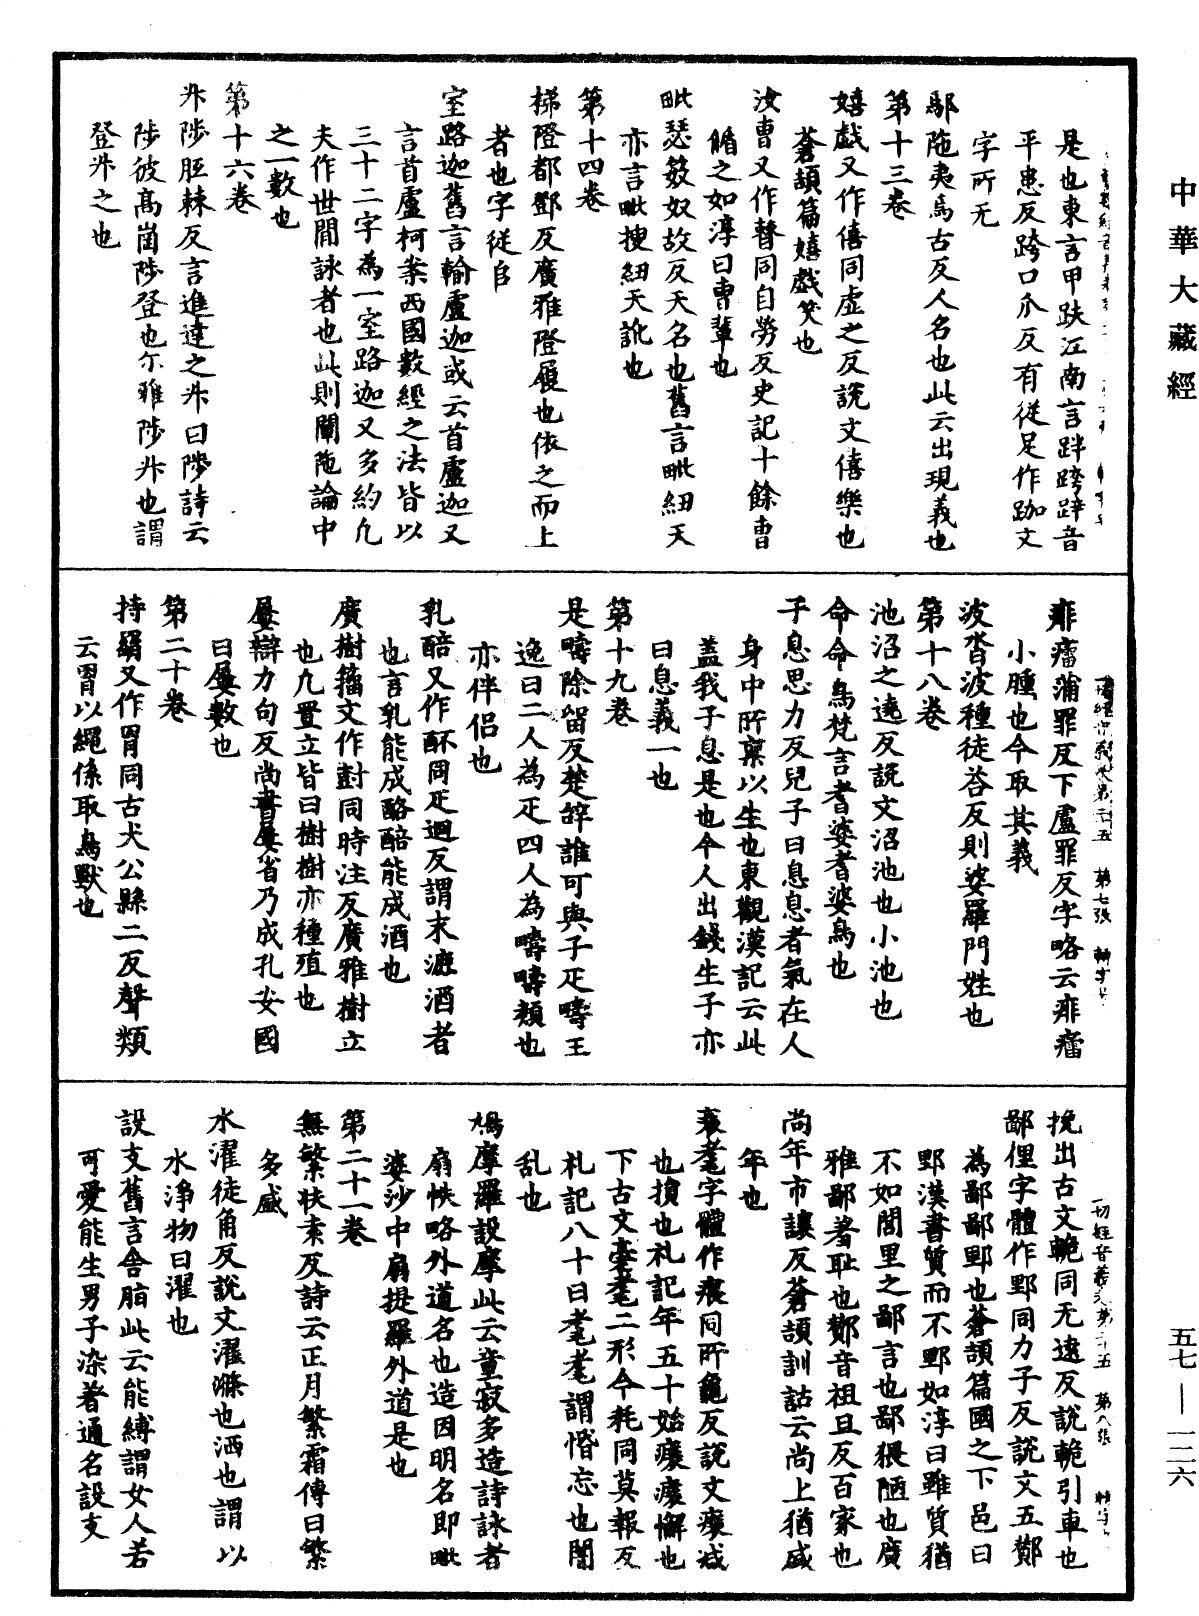 中華大藏經
是也東言甲趺江南言跘跨跘音
平患反跨口爪反有從足作跏文
字所无
鄔陁夷烏古反人名也此云出現義也
第十三卷
嬉戲又作僖同虛之反說文僖樂也
蒼頡篇嬉戲笑也
汝曹又作䜊同自勞反史記十餘曹
循之如淳曰曹輩也
毗瑟笯奴故反天名也舊言毗紐天
亦言毗搜紐天訛也
第十四卷
梯隥都鄧反廣雅隥履也依之而上
者也字從𨸏
室路迦舊言輸盧迦或云首盧迦又
言首盧柯案西國數經之法皆以
三十二字為一室路迦又多約凡
夫作世間詠者也此則闡陁論中
之一數也
第十六卷
升陟胝棘反言進達之升曰陟詩云
陟彼高崗陟登也尒雅陟升也謂
登升之也
一切經音義卷第二十五 第七張
痱癗蒲罪反下盧罪反字略云痱癗
小腫也今取其義
波沓波種徒荅反則婆羅門姓也
第十八卷
池沼之遶反說文沼池也小池也
命命鳥梵言耆婆耆婆鳥也
子息思力反兒子曰息息者氣在人
身中所稟以生也東觀漢記云此
盖我子息是也今人出錢生子亦
曰息義一也
第十九卷
是疇除留反楚辭誰可與子疋疇王
逸曰二人為疋四人為疇疇類也
亦伴侶也
乳醅又作䤃同疋迴反謂末漉酒者
也言乳能成酪醅能成酒也
廣樹籀文作尌同時注反廣雅樹立
也凡置立皆曰樹樹亦種殖也
屢辯力句反尚書屢省乃成孔安國
曰屢數也
第二十卷
持羂又作罥同古犬公縣二反聲類
云罥以繩係取鳥獸也
一切經音義卷第二十五 第八張
挽出古文輓同无遠反說輓引車也
鄙俚字體作野同力子反說文五酇
為鄙鄙野也蒼頡篇國之下邑曰
野漢書質而不野如淳曰雖質猶
不如閭里之鄙言也鄙猥陋也廣
雅鄙羞恥也酇音祖且反百家也
尚年市讓反蒼頡訓詁云尚上猶盛
年也
衰耄字體作㾁同所龜反說文癈減
也損也礼記年五十始癈癈懈也
下古文𦻷耄二形今耗同莫報反
札記八十曰耄耄謂惛忘也闇
乱也
鳩摩羅設摩此云童寂多造詩詠者
扇帙略外道名也造因明名即毗
婆沙中扇提羅外道是也
第二十一卷
無繁扶素反詩云正月繁霜傳曰繁
多盛
水濯徒角反說文濯滌也洒也謂以
水淨物曰濯也
設支舊言舍脂此云能縛謂女人若
可愛能生男子染著通名設支
五七—一二六